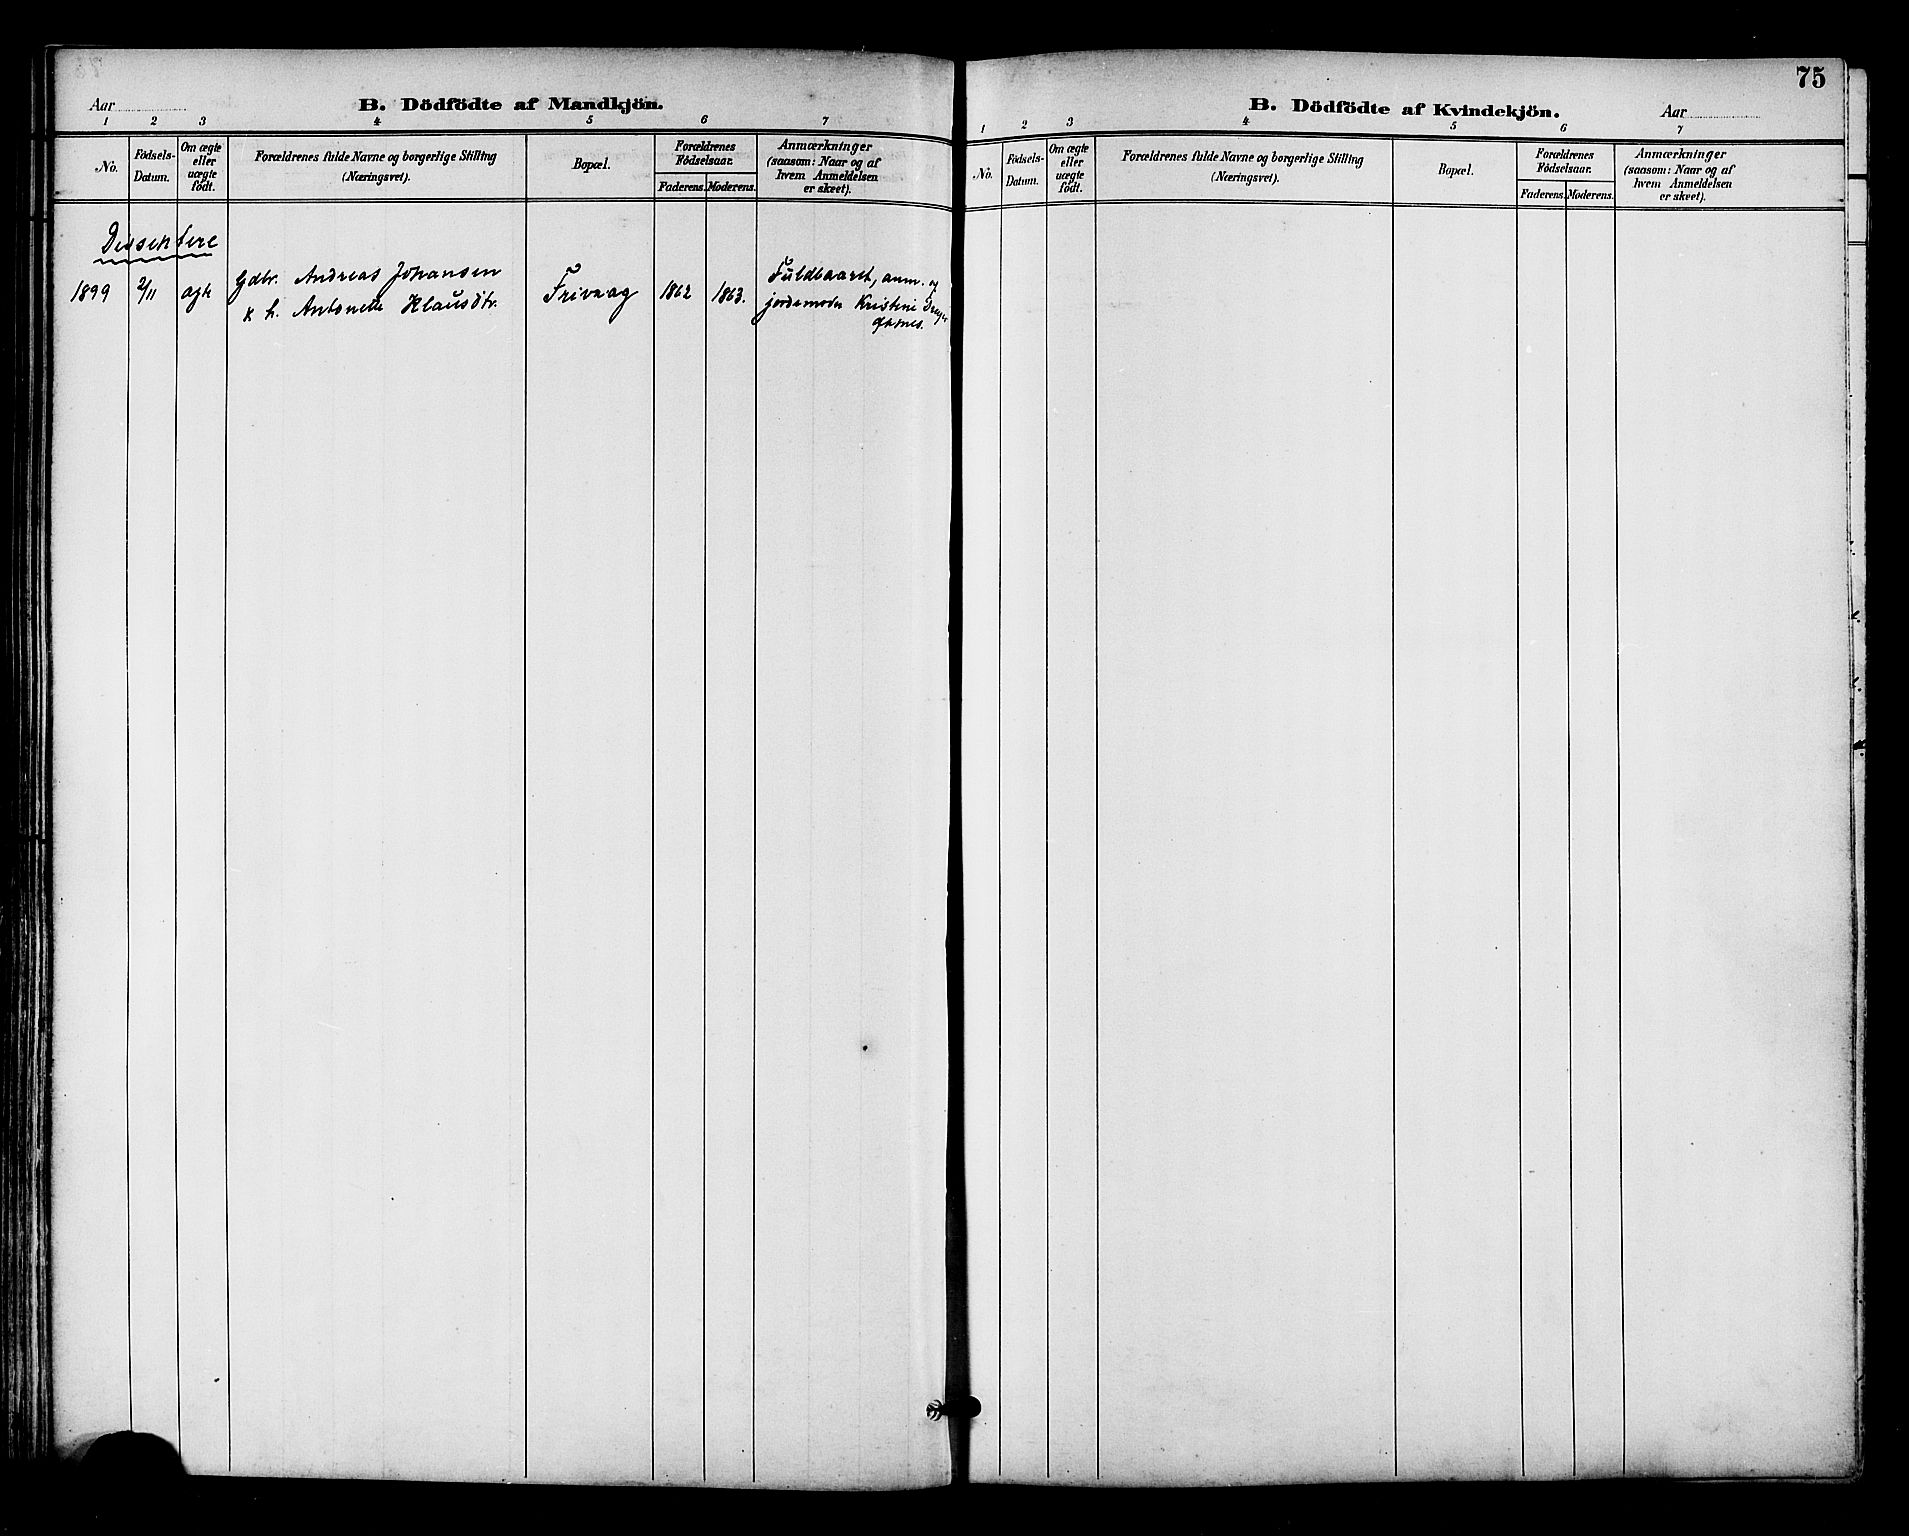 Aar
B. Dödfödte af Mandkjön.
1 2 3 4 5 6 7
No.
Födsels-Datum.
Om ægte eller uægte födt.
Forældrenes fulde Navne og borgerlige Stilling (Næringsvei).
Bopæl.
Forældrenes Födselsaar.
Faderens. Moderens.
Anmærkninger (saasom: Naar og af hvem Anmeldelsen er skeet).
Dissentere
1899 2/11 ægte Gdbr. Andreas Johansen
k h. Antonette Klausdtr.
1862 1863.
Fuldbaaret, anm. og
jordemoder Kristine
75
B. Dödfödte af Kvindekjön.
Aar
1 2 3 4 5 6 7
No.
Födsels-Datum.
Om ægte eller uægte födt.
Forældrenes fulde Navne og borgerlige Stilling (Næringsvei).
Bopæl.
Forældrenes Födselsaar.
Faderens. Moderens.
Anmærkninger (saasom: Naar og af hvem Anmeldelsen er skeet).